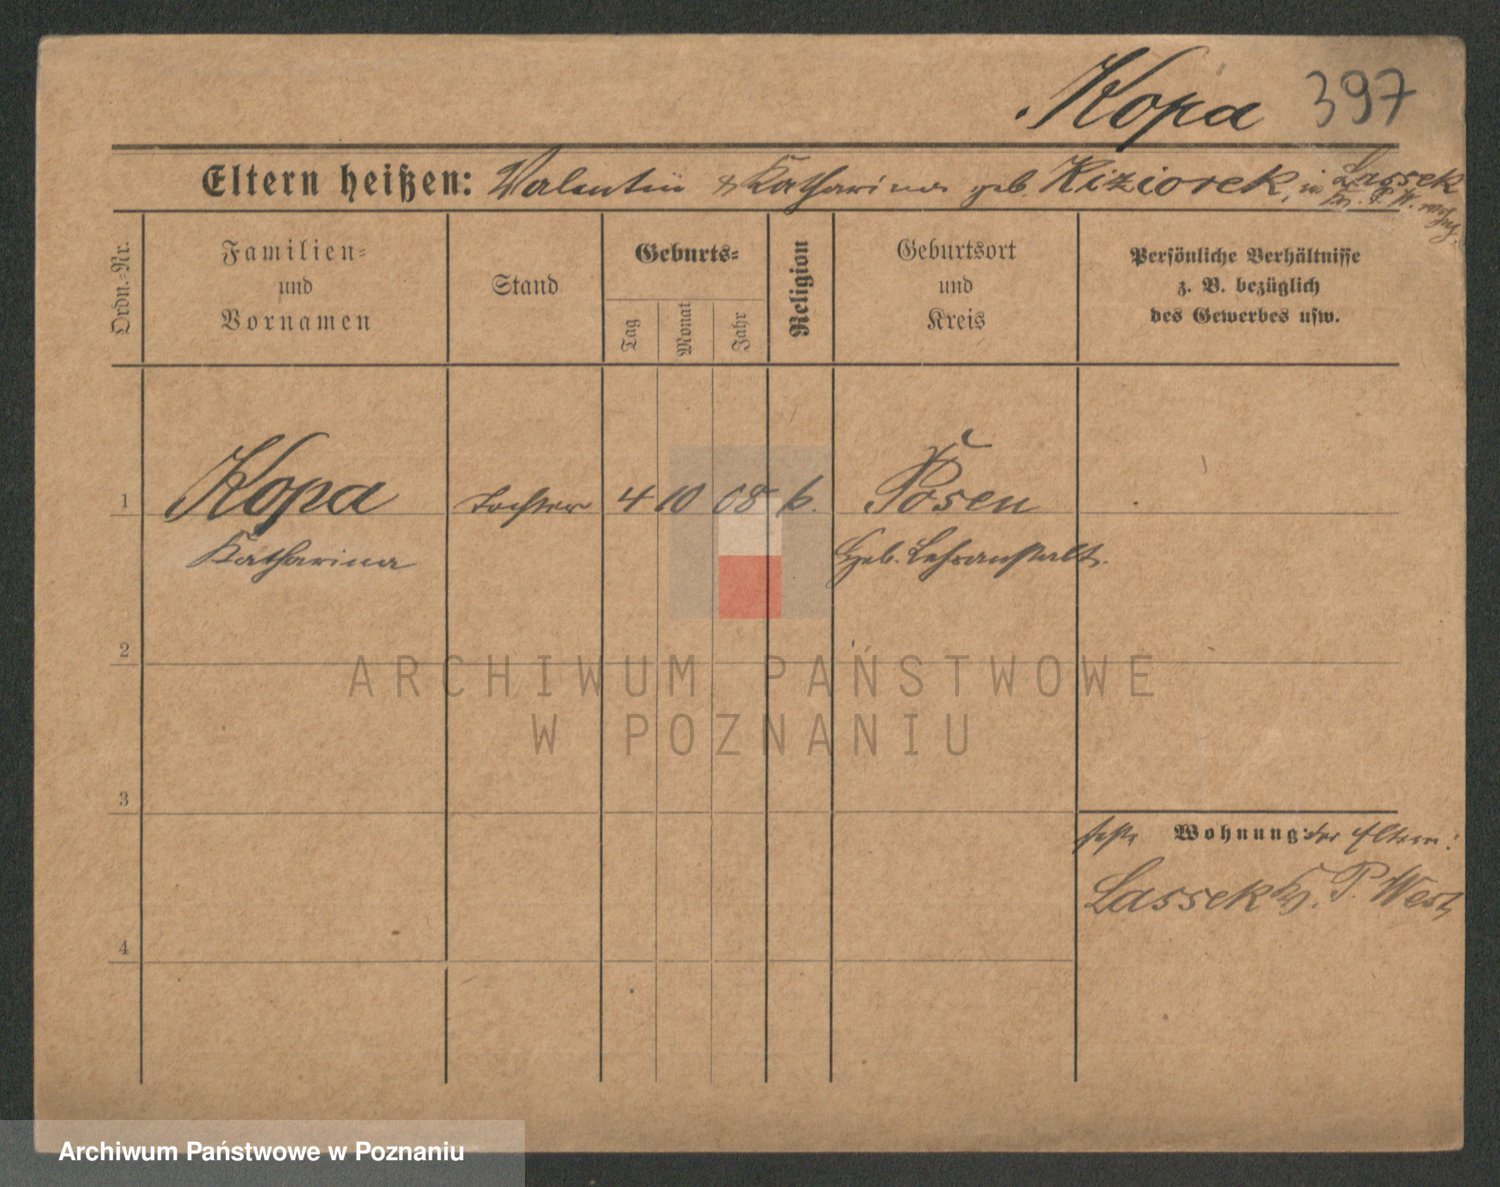 Kopa 397
Eltern heißen: Valentin & Katharina geb. Kiziorek, in Lassek
Kr. P. W. wohn.
Ordn.-Nr.
Familien-
und
Vornamen
Stand
Geburts-
Tag
Monat
Jahr
Religion
Geburtsort
und
Kreis
Persönliche Verhältnisse
z. B. bezüglich
des Gewerbes usw.
1 Kopa Tochter 4 10 08 k. Posen
Katharina Heb. Lehranstalt.
2
ARCHIWUM PAŃSTWOWE
W POZNANIU
3
Wohnung: der Eltern:
Lassek Kr. P. West
4
Archiwum Państwowe w Poznaniu